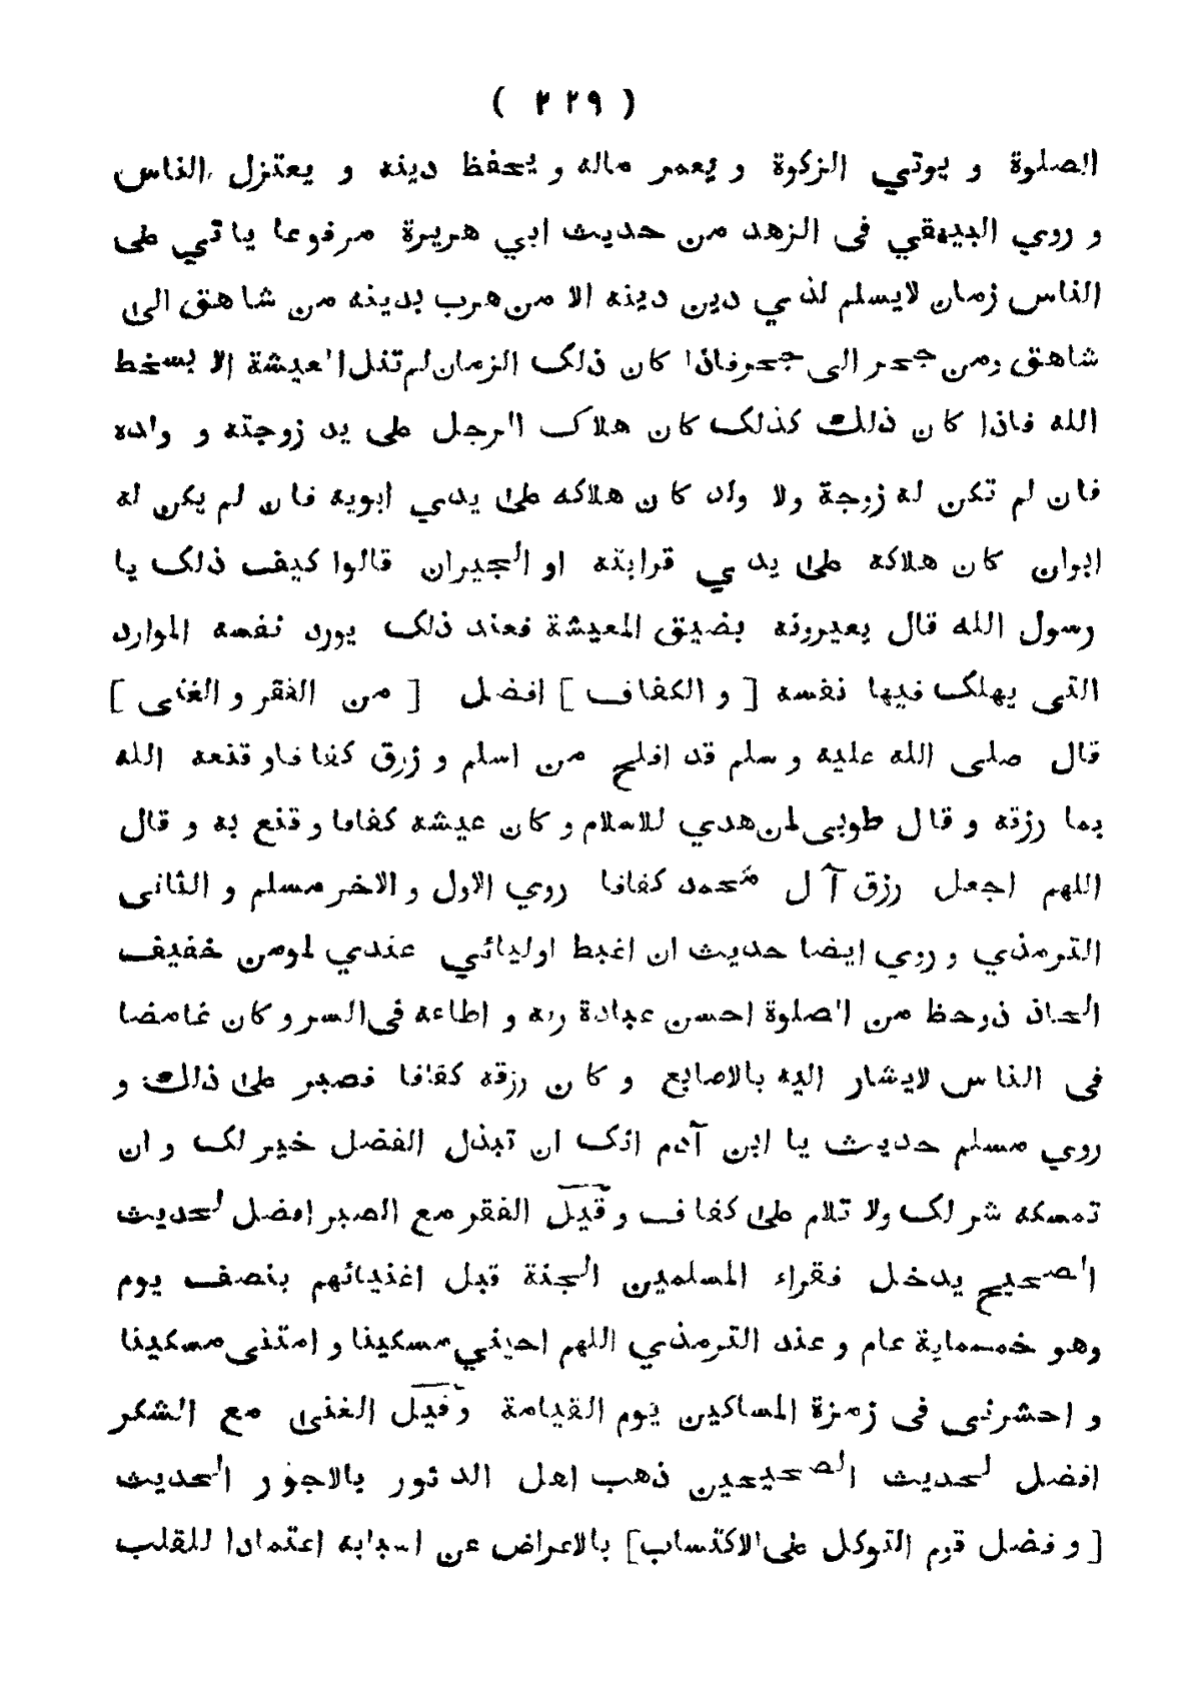 ( ٢٢٩ )
الصلوة و يوتي الزكوة و يعمر ماله و يحفظ دينه و يعتزل الناس
و روي البيهقي فى الزهد من حديث ابي هريرة مرفوعا ياتي على
الناس زمان لايسلم لذي دين دينه الا من هرب بدينه من شاهق الى
شاهق ومن جحر الى جحر فاذا كان ذلك الزمان لم تنل المعيشة الا بسخط
الله فاذا كان ذلك كذلك كان هلاك الرجل على يد زوجته و ولده
فان لم تكن له زوجة ولا ولد كان هلاكه على يدي ابويه فان لم يكن له
ابوان كان هلاكه على يدي قرابته او الجيران قالوا كيف ذلك يا
رسول الله قال يعيرونه بضيق المعيشة فعند ذلك يورد نفسه الموارد
التى يهلك فيها نفسه [ و الكفاف ] افضل [ من الفقر و الغنى ]
قال صلى الله عليه و سلم قد افلح من اسلم و رزق كفافا و قنعه الله
بما رزقه و قال طوبى لمن هدي للاسلام و كان عيشه كفافا و قنع به و قال
اللهم اجعل رزق آل محمد كفافا روي الاول و الاخر مسلم و الثانى
الترمذي و روي ايضا حديث ان اغبط اوليائي عندي لمومن خفيف
الحاذ ذو حظ من الصلوة احسن عبادة ربه و اطاعه فى السر و كان غامضا
فى الناس لايشار اليه بالاصابع و كان رزقه كفافا فصبر على ذلك و
روي مسلم حديث يا ابن آدم انك ان تبذل الفضل خير لك و ان
تمسكه شر لك ولا تلام على كفاف و قيل الفقر مع الصبر افضل لحديث
الصحيح يدخل فقراء المسلمين الجنة قبل اغنيائهم بنصف يوم
وهو خمسماية عام و عند الترمذي اللهم احيني مسكينا و امتنى مسكينا
و احشرنى فى زمرة المساكين يوم القيامة و قيل الغنى مع الشكر
افضل لحديث الصحيحين ذهب اهل الدثور بالاجور الحديث
[ و فضل قوم التوكل على الاكتساب] بالاعراض عن اسبابه اعتمادا للقلب